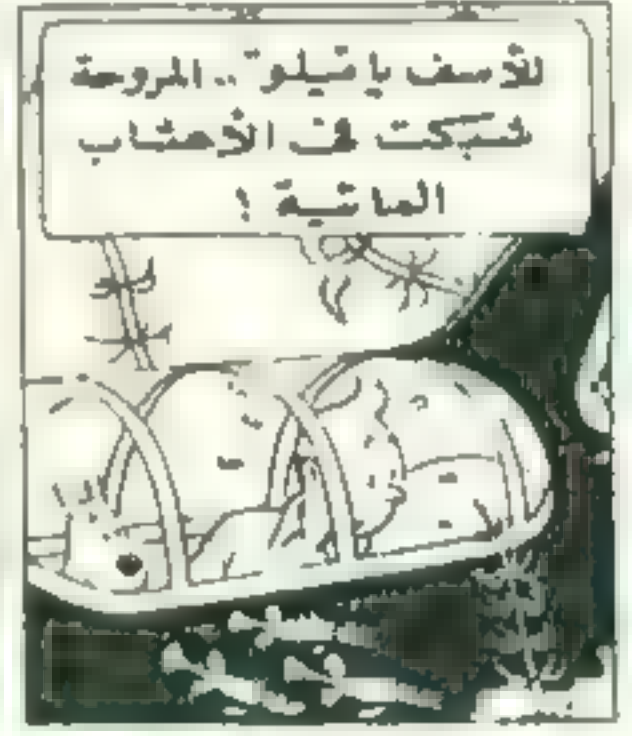 للأسف يا تيلو .. المروحة
شبكت في الأعشاب
المائية !